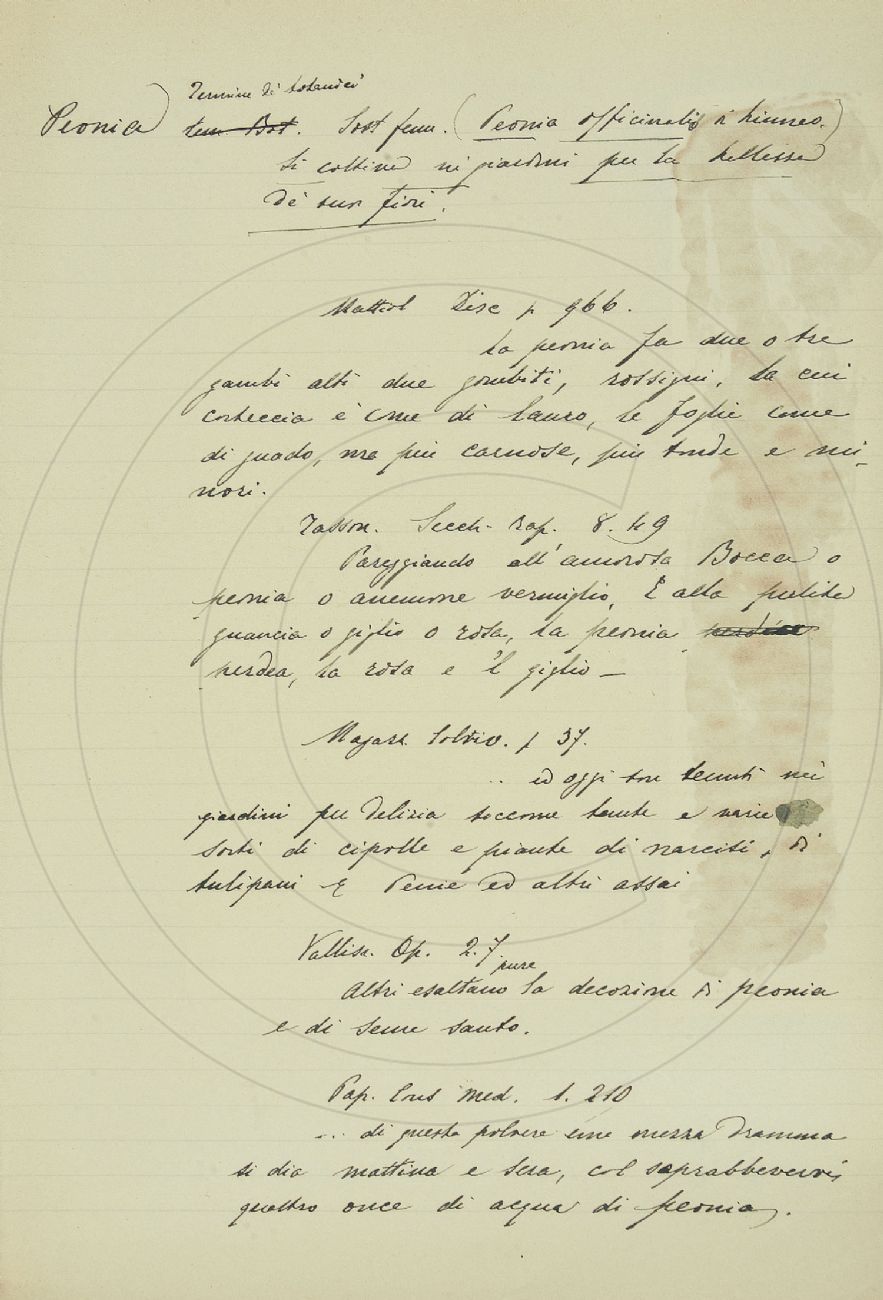 Termine di botanici
Peonia) tem Bot. Sost fem. (Peonia officinalis di Linneo.)
Si coltiva ne giardini per la bellezza
de suoi fiori.
Mattiol Disc p 966.
La peonia fa due o tre
gambi alti due gombiti, rossigni, la cui
corteccia è come di lauro, le foglie come
di guado, ma più carnose, più tonde e mi-
nori.
Tasson. Secch. rap. 8. 49
Pareggiando all'amorosa Bocca o
peonia o anemone vermiglio, E alla pulita
guancia o giglio o rosa, la peonia perdea
perdea, la rosa e 'l giglio —
Magazz. Coltiv. p 37.
.. ed oggi son tenuti nei
giardini per delizia siccome tante e varie
sorti di cipolle e piante di narcisi, di
tulipani e Penie ed altri assai
Vallisn. Op. 2. 7.
pure
Altri esaltano la decozione di peonia
e di seme santo.
Pap. Cons med. 1. 210
... di questa polvere una mezza Dramma
si dia mattina e sera, col soprabbevervi
quattro once di acqua di peonia.